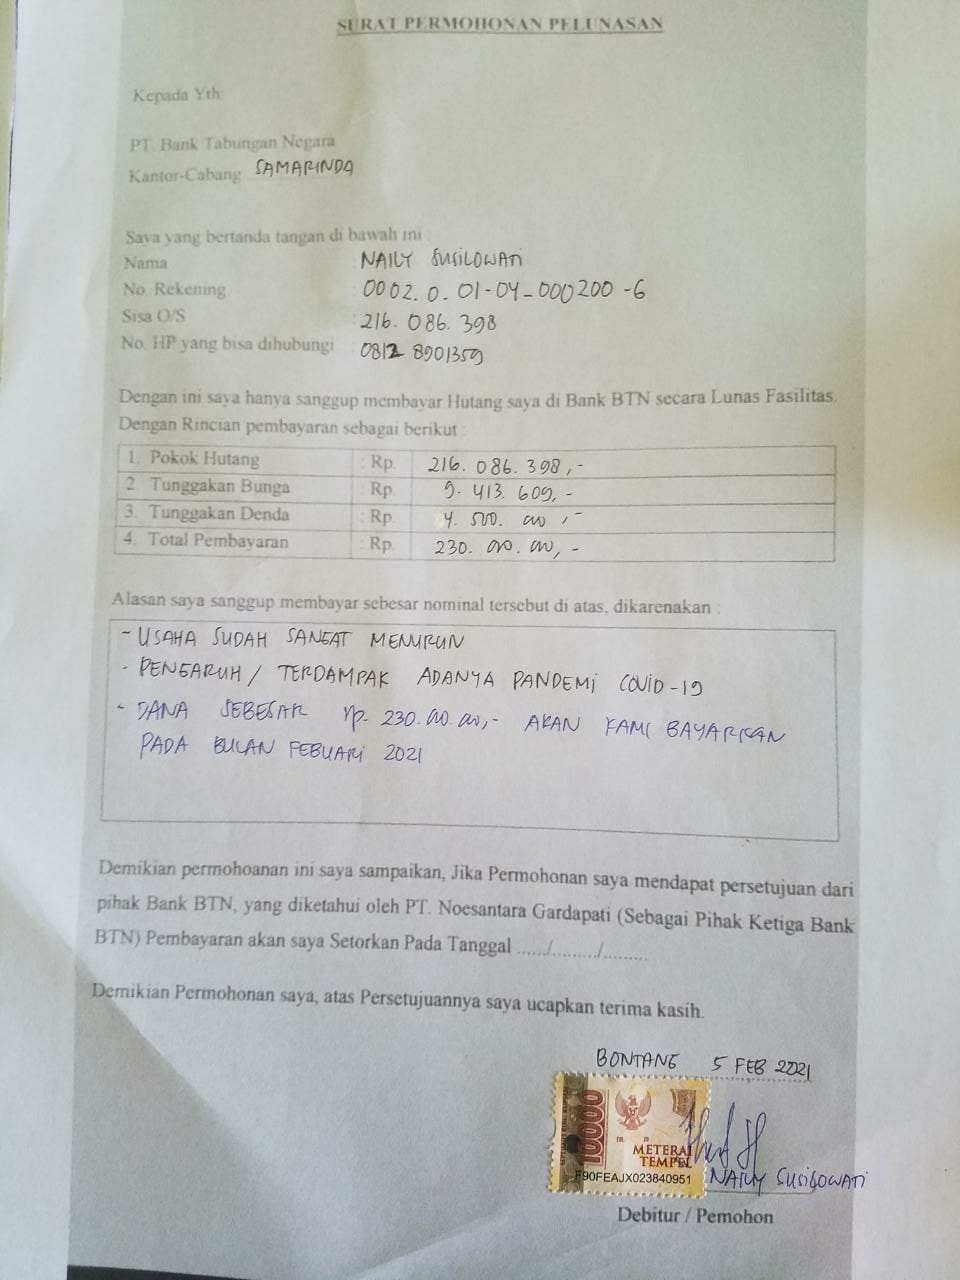 SURAT PERMOHONAN PELUNASAN
Kepada Yth:
PT. Bank Tabungan Negara
Kantor-Cabang SAMARINDA
Saya yang bertanda tangan di bawah ini :
Nama : NAILY SUSILOWATI
No. Rekening : 0002.0.01-04-000200-6
Sisa O/S : 216.086.398
No. HP yang bisa dihubungi : 0812 8901359
Dengan ini saya hanya sanggup membayar Hutang saya di Bank BTN secara Lunas Fasilitas.
Dengan Rincian pembayaran sebagai berikut :
1. Pokok Hutang : Rp. 216.086.398,-
2. Tunggakan Bunga : Rp. 9.413.609,-
3. Tunggakan Denda : Rp. 4.500.000,-
4. Total Pembayaran : Rp. 230.000.000,-
Alasan saya sanggup membayar sebesar nominal tersebut di atas, dikarenakan :
- USAHA SUDAH SANGAT MENURUN
- PENGARUH / TERDAMPAK ADANYA PANDEMI COVID-19
- DANA SEBESAR Rp. 230.000.000,- AKAN KAMI BAYARKAN
PADA BULAN FEBUARI 2021
Demikian permohoanan ini saya sampaikan, Jika Permohonan saya mendapat persetujuan dari
pihak Bank BTN, yang diketahui oleh PT. Noesantara Gardapati (Sebagai Pihak Ketiga Bank
BTN) Pembayaran akan saya Setorkan Pada Tanggal ....../........./.........
Demikian Permohonan saya, atas Persetujuannya saya ucapkan terima kasih.
BONTANG 5 FEB 2021
10000
METERAI
TEMPEL
F90FEAJX023840951
NAILY SUSILOWATI
Debitur / Pemohon